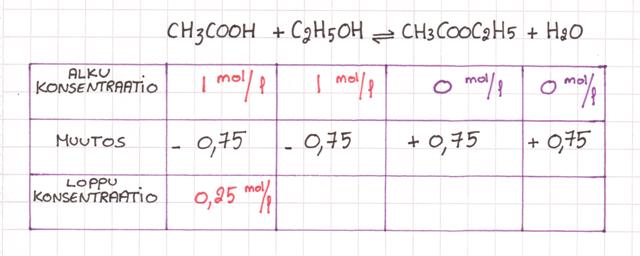 CH3COOH + C2H5OH ⇌ CH3COOC2H5 + H2O
ALKU KONSENTRAATIO 1 mol/l 1 mol/l 0 mol/l 0 mol/l
MUUTOS - 0,75 - 0,75 + 0,75 + 0,75
LOPPU KONSENTRAATIO 0,25 mol/l